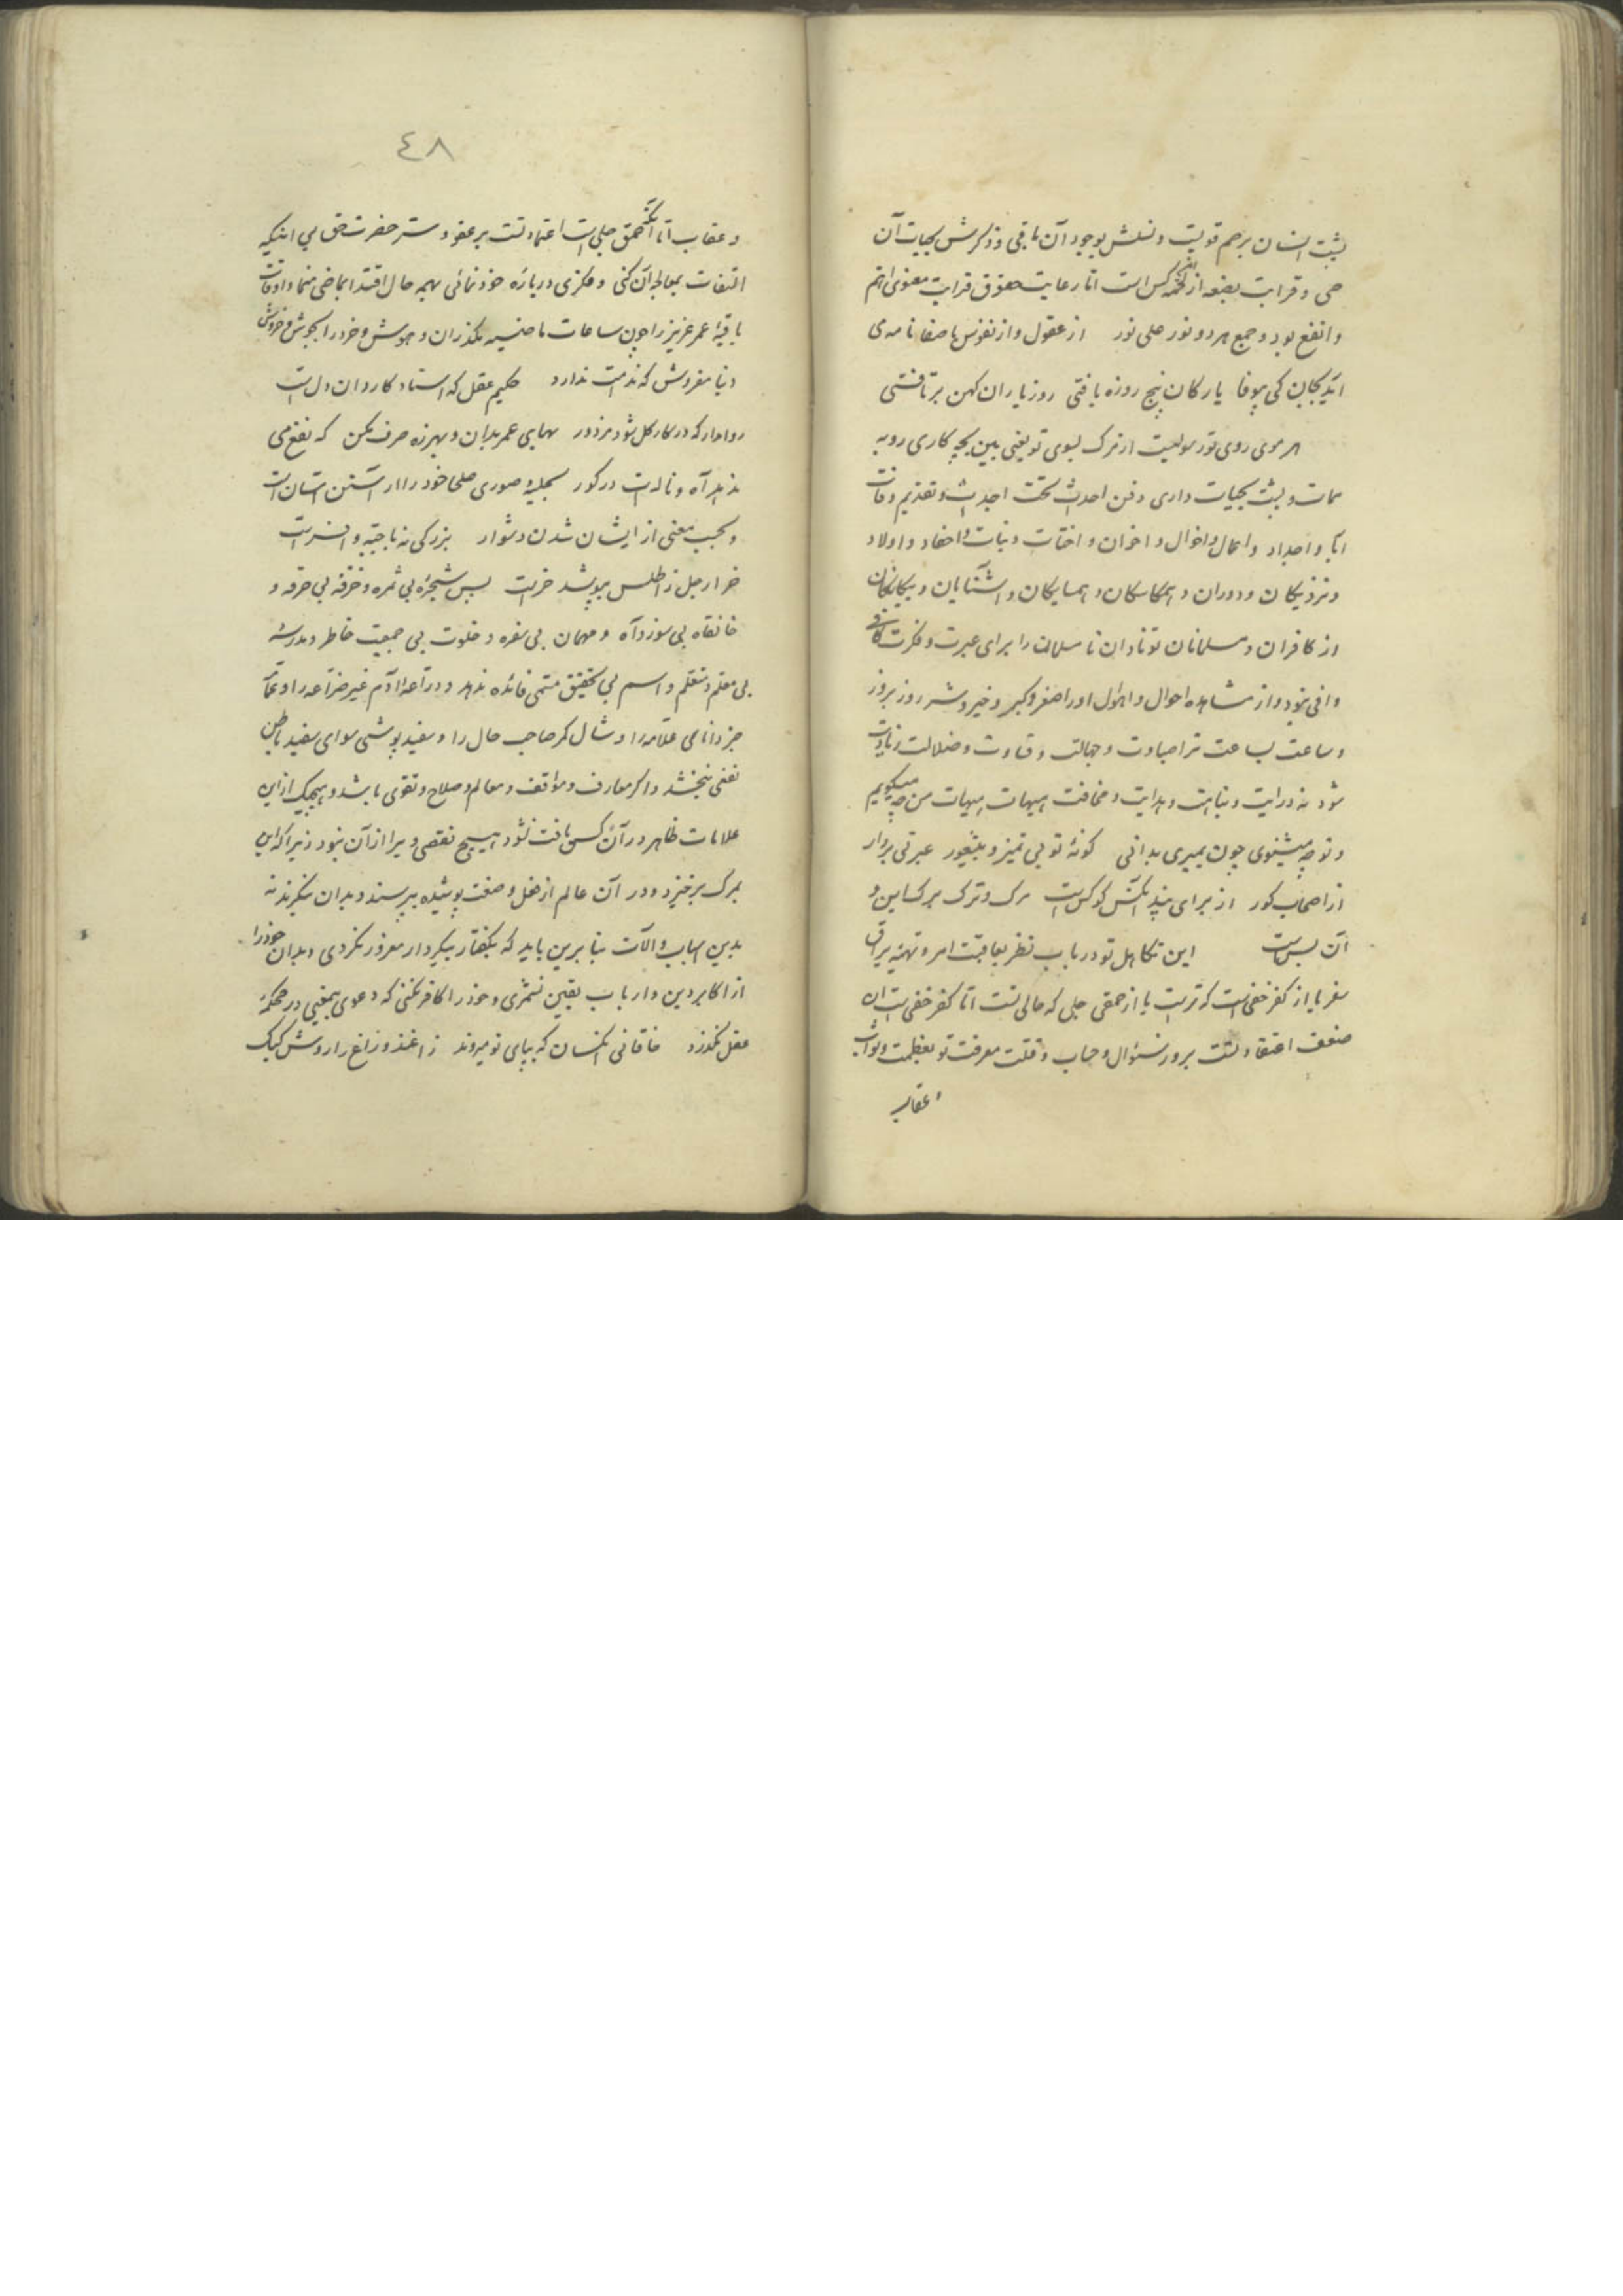 پشت انسان برحم قویست و نسلش بوجود آن باقی و ذکرش بحیات آن
حی و قرابت بضعه از لحمه کس است اما رعایت حقوق قرابت معنوی اتم
و انفع بود و جمع هر دو نور علی نور از عقول و از نفوس با صفا نامه می
آید بجان کی بیوفا یارکان پنج روزه یافتی روز یاران کهن برتافتی
هر موی روی تو رسولیست از مرک بسوی تو یعنی ببین بچه کاری رو به
ممات و پشت بحیات داری دفن احدث تحت اجداث و تقدیم وفات
آبا و اجداد و اعمال و اخوال و اخوان و اخوات و بنات و احفاد و اولاد
و نزدیکان و دوران و همکاسکان و همسایکان و آشنایان و بیکانکان
از کافران و مسلمانان تو نادان نا مسلمان را برای عبرت و فکرت کافی
و وافی نبود و از مشاهده احوال و اهوال او را اصغر و کبر و خیر و شر روز بروز
و ساعت بساعت ترا عباوت و جهالت و قساوت و ضلالت زیادت
شود نه درایت و نباهت و هدایت و مخافت هیهات هیهات من چه میکویم
و تو چه میشنوی چون بمیری بدانی کونهٔ تو بی تمیز و بی شعور عبرتی بردار
از اصحاب کور از برای پند آنکس کو کرست مرک و ترک هر کس این و
آن بس است این تکاهل تو در باب نظر بعاقبت امر و تهیه یراق
سفر یا از کفر خفیست که تراست یا از حمقی جلی که حالی تست اما کفر خفیت آن
ضعف اعتقاد تست بروز سئوال و حساب و قلت معرفت تو بعظمت و ثواب
و عقاب
٤٨
و عقاب اما آنکه حمق جلیست اعتماد تست بر عفو و ستر حضرت حق بی اینکه
التفات بمعالجه آن کنی و فکری در باره خود نمائی بهمه حال اقتدا بماضی منما و اوقات
باقیهٔ عمر عزیز را چون ساعات ماضیه مکذران و هوش و خرد را بجوش و خروش
دنیا مفروش که ندامت ندارد حکیم عقل که استاد کاردان دلست
روا مدار که در کار کل شود مزدور بهای عمر بدان و بهرزه صرف مکن که نفع می
ندهد آه و ناله ات در کور بحلیهٔ صوری صلحا خود را آراستن آسان است
و بحسب معنی از ایشان شدن دشوار بزرکی نه با جبه و افسرست
خر ار جل ز اطلس بپوشد خرست پس شجرهٔ بی ثمره و خرقهٔ بی حرقه و
خانقاه بی سوز و آه و مهمان بی سفره و خلوت بی جمعیت خاطر و مدرسهٔ
بی معلم و متعلم و اسم بی تحقیق مسمی فائده ندهد و دراعه آدم غیر ضراعه را و عمامه
جز دانای علامه را و شال کر صاحب حال را و سفید پوشی سوای سفید باطن
نفعی نبخشد و اکر معارف و مواقف و معالم و صلاح و تقوی باشد و هیچیک از این
علامات ظاهر در آن کس یافت نشود هیچ نقصی ویرا از آن نبود زیرا که این
بمرک برخیزد و در آن عالم از فعل و صفت پوشیده بپرسند و بدان بنکرند نه
بدین اسباب و آلات بنابرین باید که بکفتار بیکردار مغرور نکردی و بدان خود را
از اکابر دین و ارباب یقین نشمری و خود را کافر نکنی که دعوی بیمعنی در محکمهٔ
عقل نکذرد خاقانی آنکسان که بپای تو میروند زاغند و زاغ را روش کبک